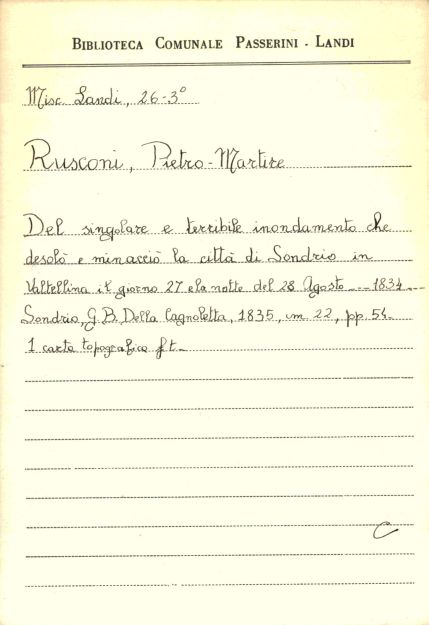 BIBLIOTECA COMUNALE PASSERINI - LANDI
Misc. Landi, 26-3°
Rusconi, Pietro-Martire
Del singolare e terribile inondamento che
desolò e minacciò la città di Sondrio in
Valtellina il giorno 27 e la notte del 28 Agosto --- 1834 ---
Sondrio, G.B. Della Cagnoletta, 1835, cm 22, pp. 54-
1 carta topografica f.t.-
C